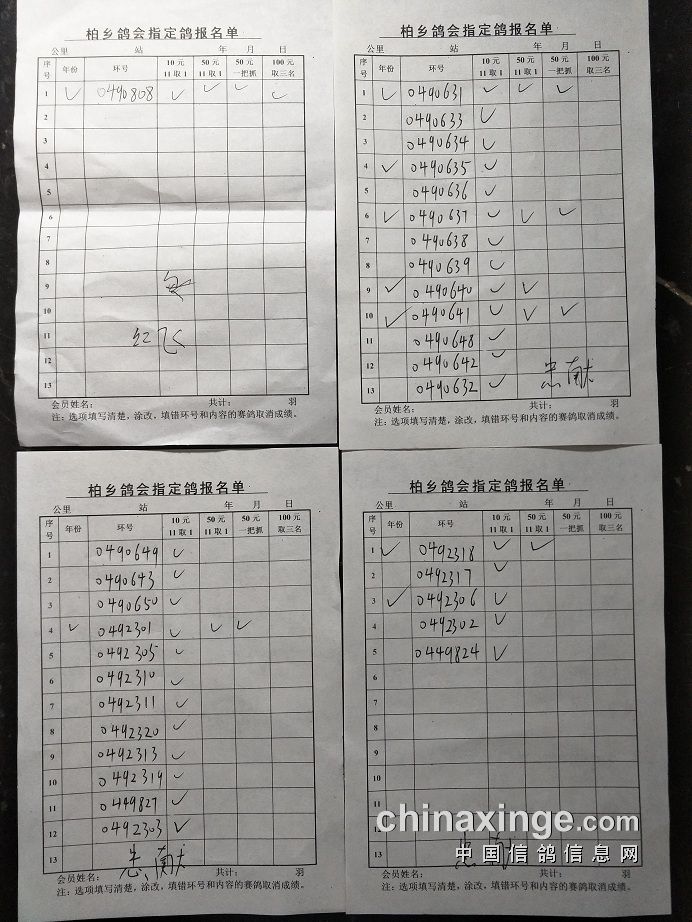 柏乡鸽会指定鸽报名单
公里 站 年 月 日
序号 年份 环号 10元11取1 50元11取1 50元一把抓 100元取三名
1 ✓ 0490808 ✓ ✓ ✓ ✓
2
3
4
5
6
7
8
9
10
11 红飞
12
13
会员姓名: 共计: 羽
注:选项填写清楚,涂改,填错环号和内容的赛鸽取消成绩。
柏乡鸽会指定鸽报名单
公里 站 年 月 日
序号 年份 环号 10元11取1 50元11取1 50元一把抓 100元取三名
1 ✓ 0490631 ✓ ✓ ✓
2 0490633 ✓
3 0490634 ✓
4 ✓ 0490635 ✓
5 0490636 ✓
6 ✓ 0490637 ✓ ✓ ✓
7 0490638 ✓
8 0490639 ✓
9 ✓ 0490640 ✓ ✓
10 ✓ 0490641 ✓ ✓ ✓
11 0490648 ✓
12 0490642 ✓
13 0490632 ✓ 忠献
会员姓名: 共计: 羽
注:选项填写清楚,涂改,填错环号和内容的赛鸽取消成绩。
柏乡鸽会指定鸽报名单
公里 站 年 月 日
序号 年份 环号 10元11取1 50元11取1 50元一把抓 100元取三名
1 0490649 ✓
2 0490643 ✓
3 0490650 ✓
4 ✓ 0492301 ✓ ✓ ✓
5 0492305 ✓
6 0492310 ✓
7 0492311 ✓
8 0492320 ✓
9 0492313 ✓
10 0492319 ✓
11 0449827 ✓
12 0492303 ✓
13 忠献
会员姓名: 共计: 羽
注:选项填写清楚,涂改,填错环号和内容的赛鸽取消成绩。
柏乡鸽会指定鸽报名单
公里 站 年 月 日
序号 年份 环号 10元11取1 50元11取1 50元一把抓 100元取三名
1 ✓ 0492318 ✓ ✓
2 0492317 ✓
3 ✓ 0492306 ✓
4 0492302 ✓
5 0449824 ✓
6
7
8
9
10
11
12
13
会员姓名: 共计: 羽
注:选项填写清楚,涂改,填错环号和内容的赛鸽取消成绩。
chinaxinge.com
中国信鸽信息网